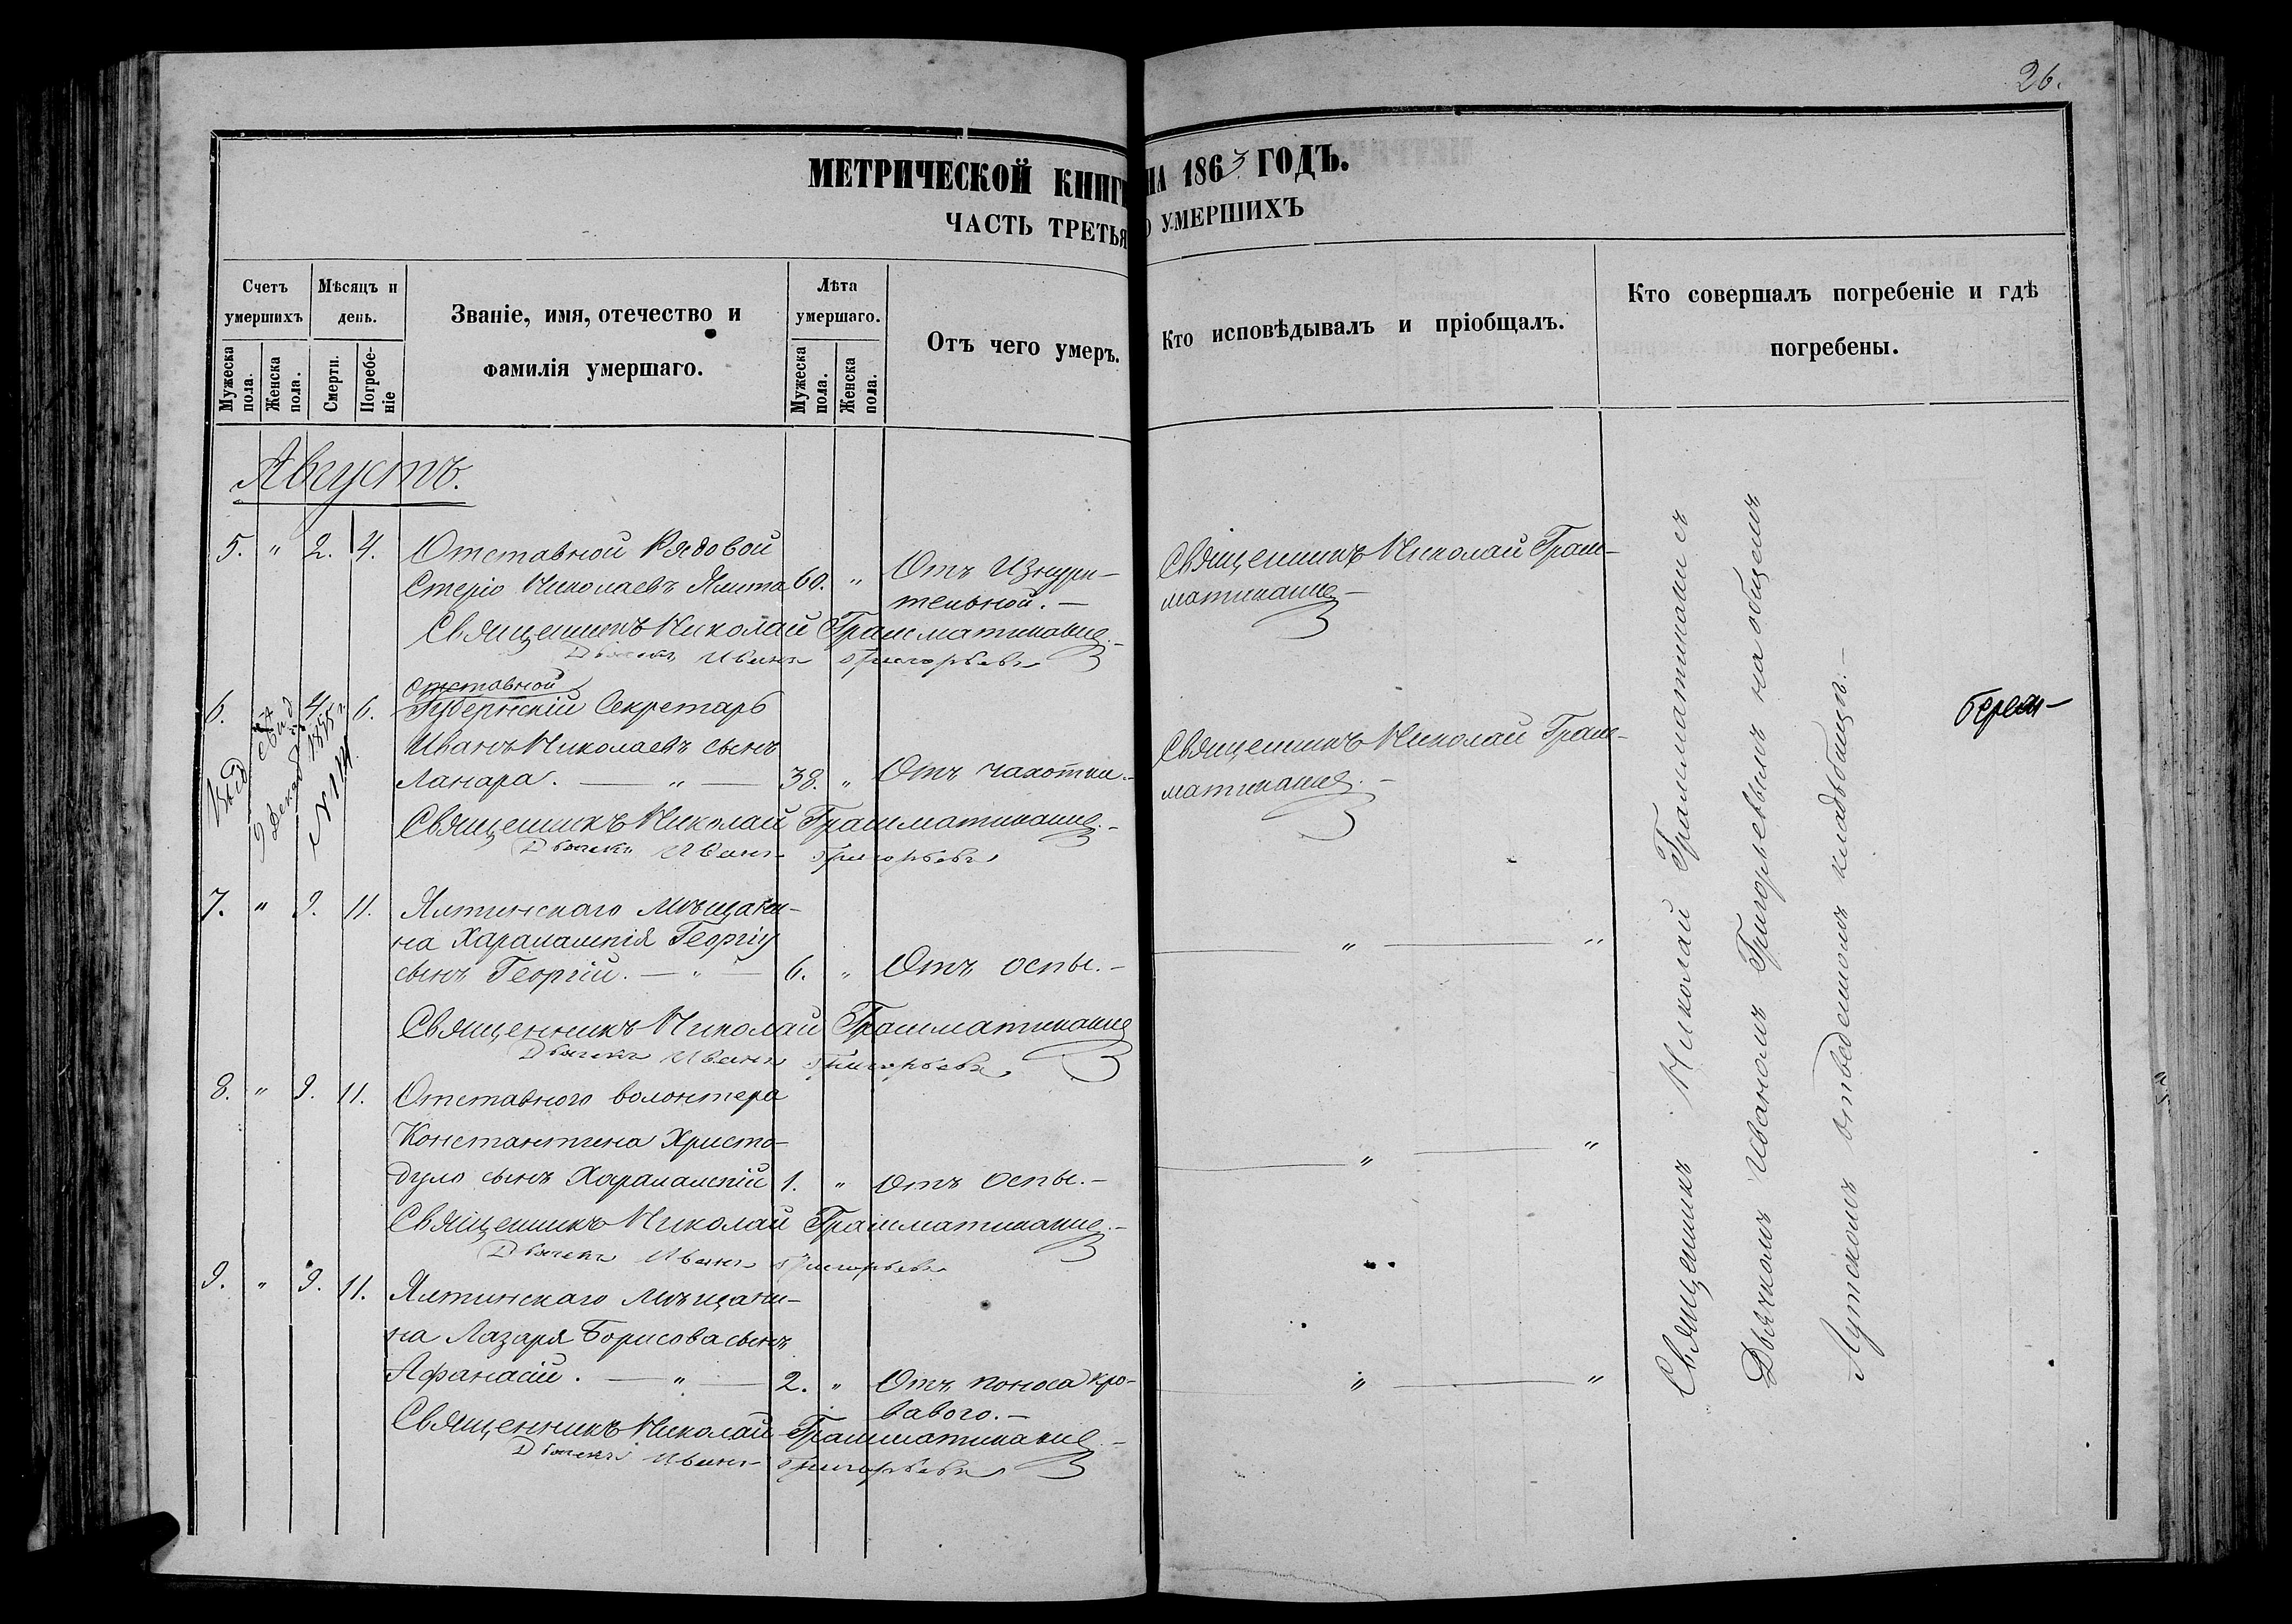 26.
МЕТРИЧЕСКОЙ КНИГИ НА 1863 ГОДЪ.
ЧАСТЬ ТРЕТЬЯ О УМЕРШИХЪ
Счетъ умершихъ
Мужеска пола.
Женска пола.
Мѣсяцъ и день.
Смерти.
Погребеніе
Званіе, имя, отечество и
фамилія умершаго.
Лѣта умершаго.
Мужеска пола.
Женска пола.
Отъ чего умеръ.
Кто исповѣдывалъ и пріобщалъ.
Кто совершалъ погребеніе и гдѣ
погребены.
Августъ.
5. " 2. 4. Отставной Рядовой
Стеріо Николаевъ Ялита 60. " Отъ Изнури-
тельной.-
Священникъ Николай Грам-
матикакис-
Священникъ Николай Грамматикакис.-
Дьячекъ Иванъ Григорьевъ
6. 4. 6. Отставной
Губернскій Секретарь
Иванъ Николаевъ сынъ
Ланара. — " — 38. " Отъ чахотки.-
Священникъ Николай Грам-
матикакис.-
Выд
Свид
9 Декаб 1885 г.
Священникъ Николай Грамматикакис.-
Дьячекъ Иванъ Григорьевъ
7. " 9. 11. Ялтинскаго Мѣщани-
на Харалампія Георгіу
сынъ Георгій. — " — 6. " Отъ оспы.-
" "
Священникъ Николай Грамматикакис
Дьячекъ Иванъ Григорьевъ
8. " 9. 11. Отставного волонтера
Константина Христо-
дуло сынъ Харалампій 1. " Отъ Оспы.-
" "
Священникъ Николай Грамматикакис.-
Дьячекъ Иванъ Григорьевъ
9. " 9. 11. Ялтинскаго Мѣщани-
на Лазаря Борисова сынъ
Афанасій. — " — 2. " Отъ поноса кро-
ваваго.-
" "
Священникъ Николай Грамматикакис.-
Дьячекъ Иванъ Григорьевъ
Священникъ Николай Грамматикаки съ
Дьячкомъ Иваномъ Григорьевымъ на общемъ
Аутскомъ отведенномъ кладьбищѣ.-